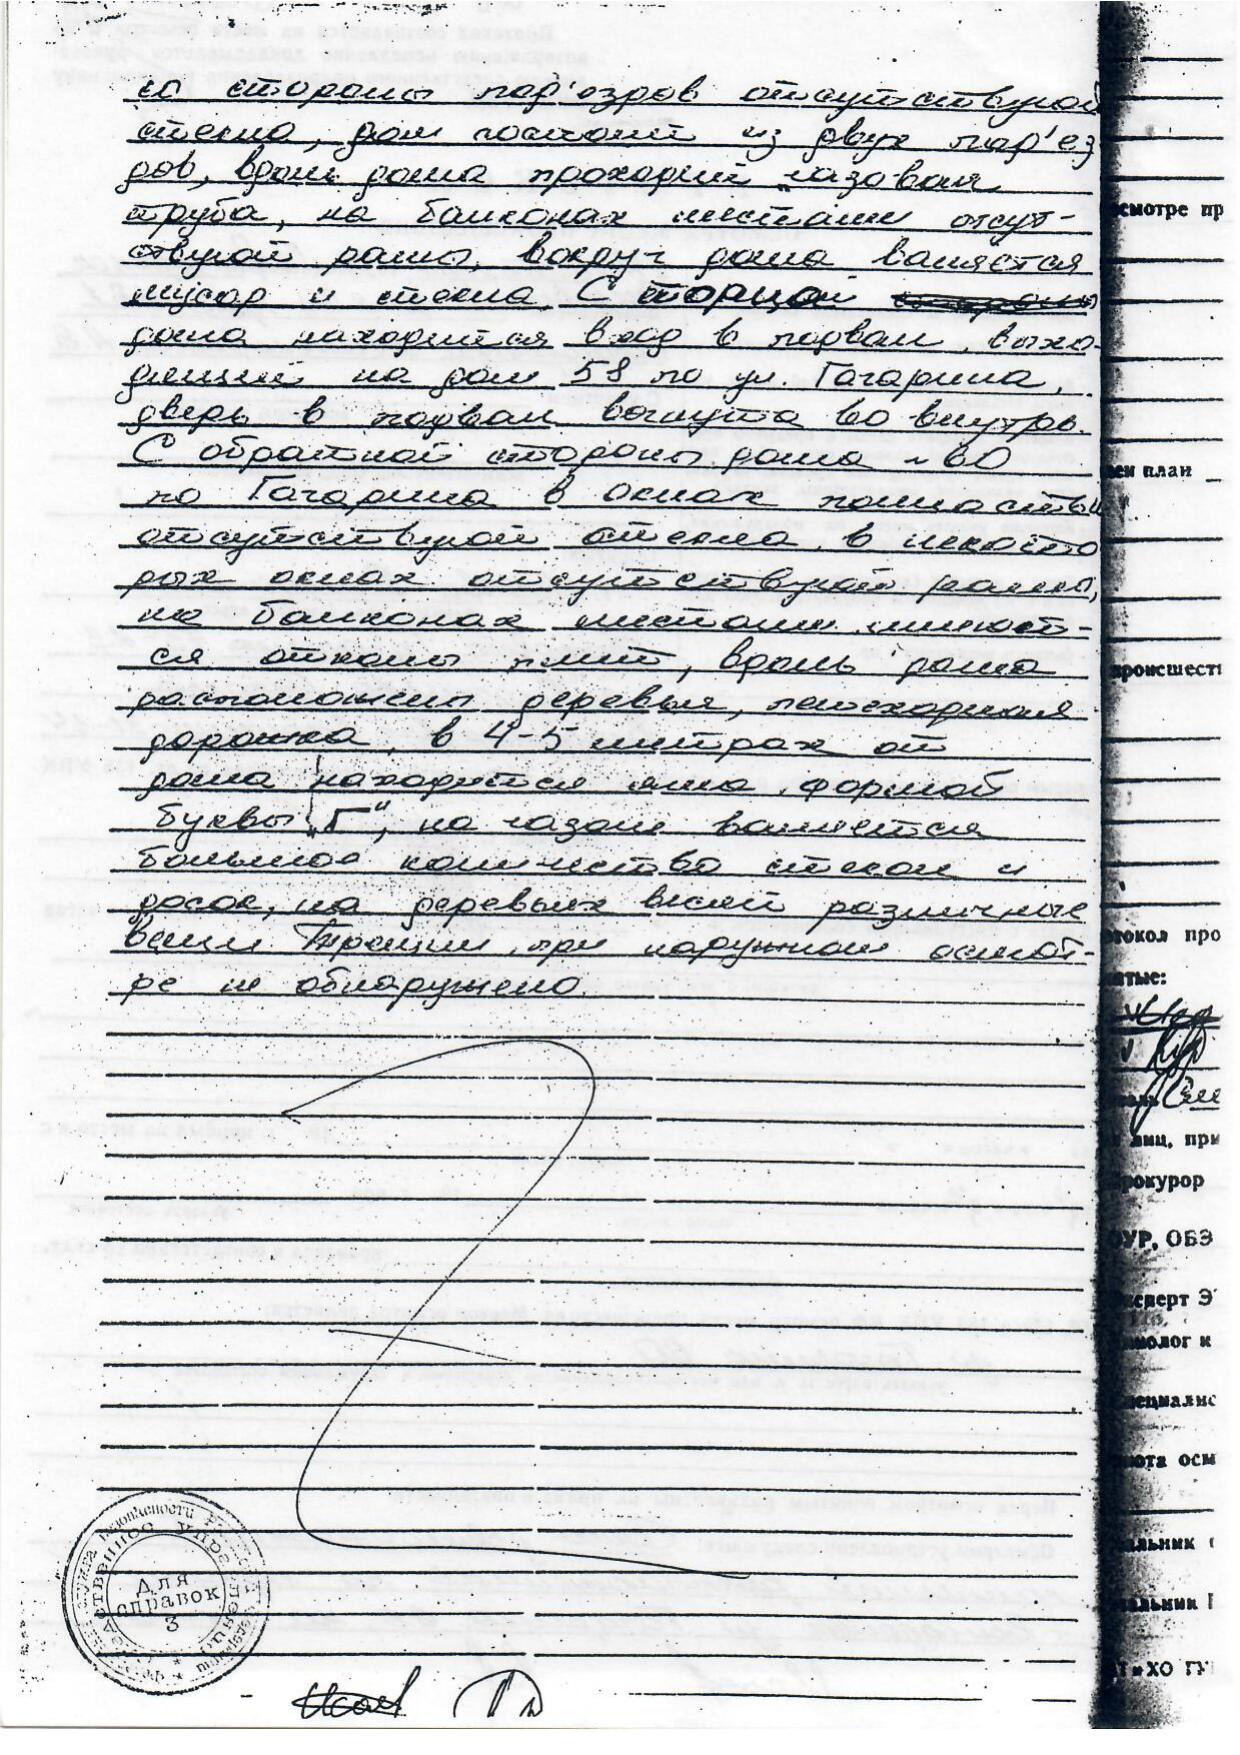 со стороны под'ездов отсутствуют
стекла, дом состоит из двух под'ез
дов, вдоль дома проходит газовая
труба, на балконах местами отсут-
ствуют рамы, вокруг дома валяется
мусор и стекла С торцой
дома находится вход в подвал, выхо-
дящий на дом 58 по ул Гагарина
дверь в подвал вогнута во внутрь.
С обратной стороны дома №60
по Гагарина в окнах полностью
отсутствуют стекла, в некото
рых окнах отсутствуют рамы,
на балконах местами имеют-
ся отколы плит, вдоль дома
расположены деревья, пешеходная
дорожка, в 4-5 митрах от
дома находится яма формой
буквы „Г", на газоне валяется
большое количество стекол и
досок, на деревьях висят различные
вещи Трещин при наружном осмот-
ре не обнаружено.
осмотре пр
ен план
происшести
отокол про
ятые:
лиц, при
Прокурор
ОУР, ОБЭ
ксперт Э
нолог к
пециалис
ота осм
альник
альник
и ХО ГУ
Для
справок
3